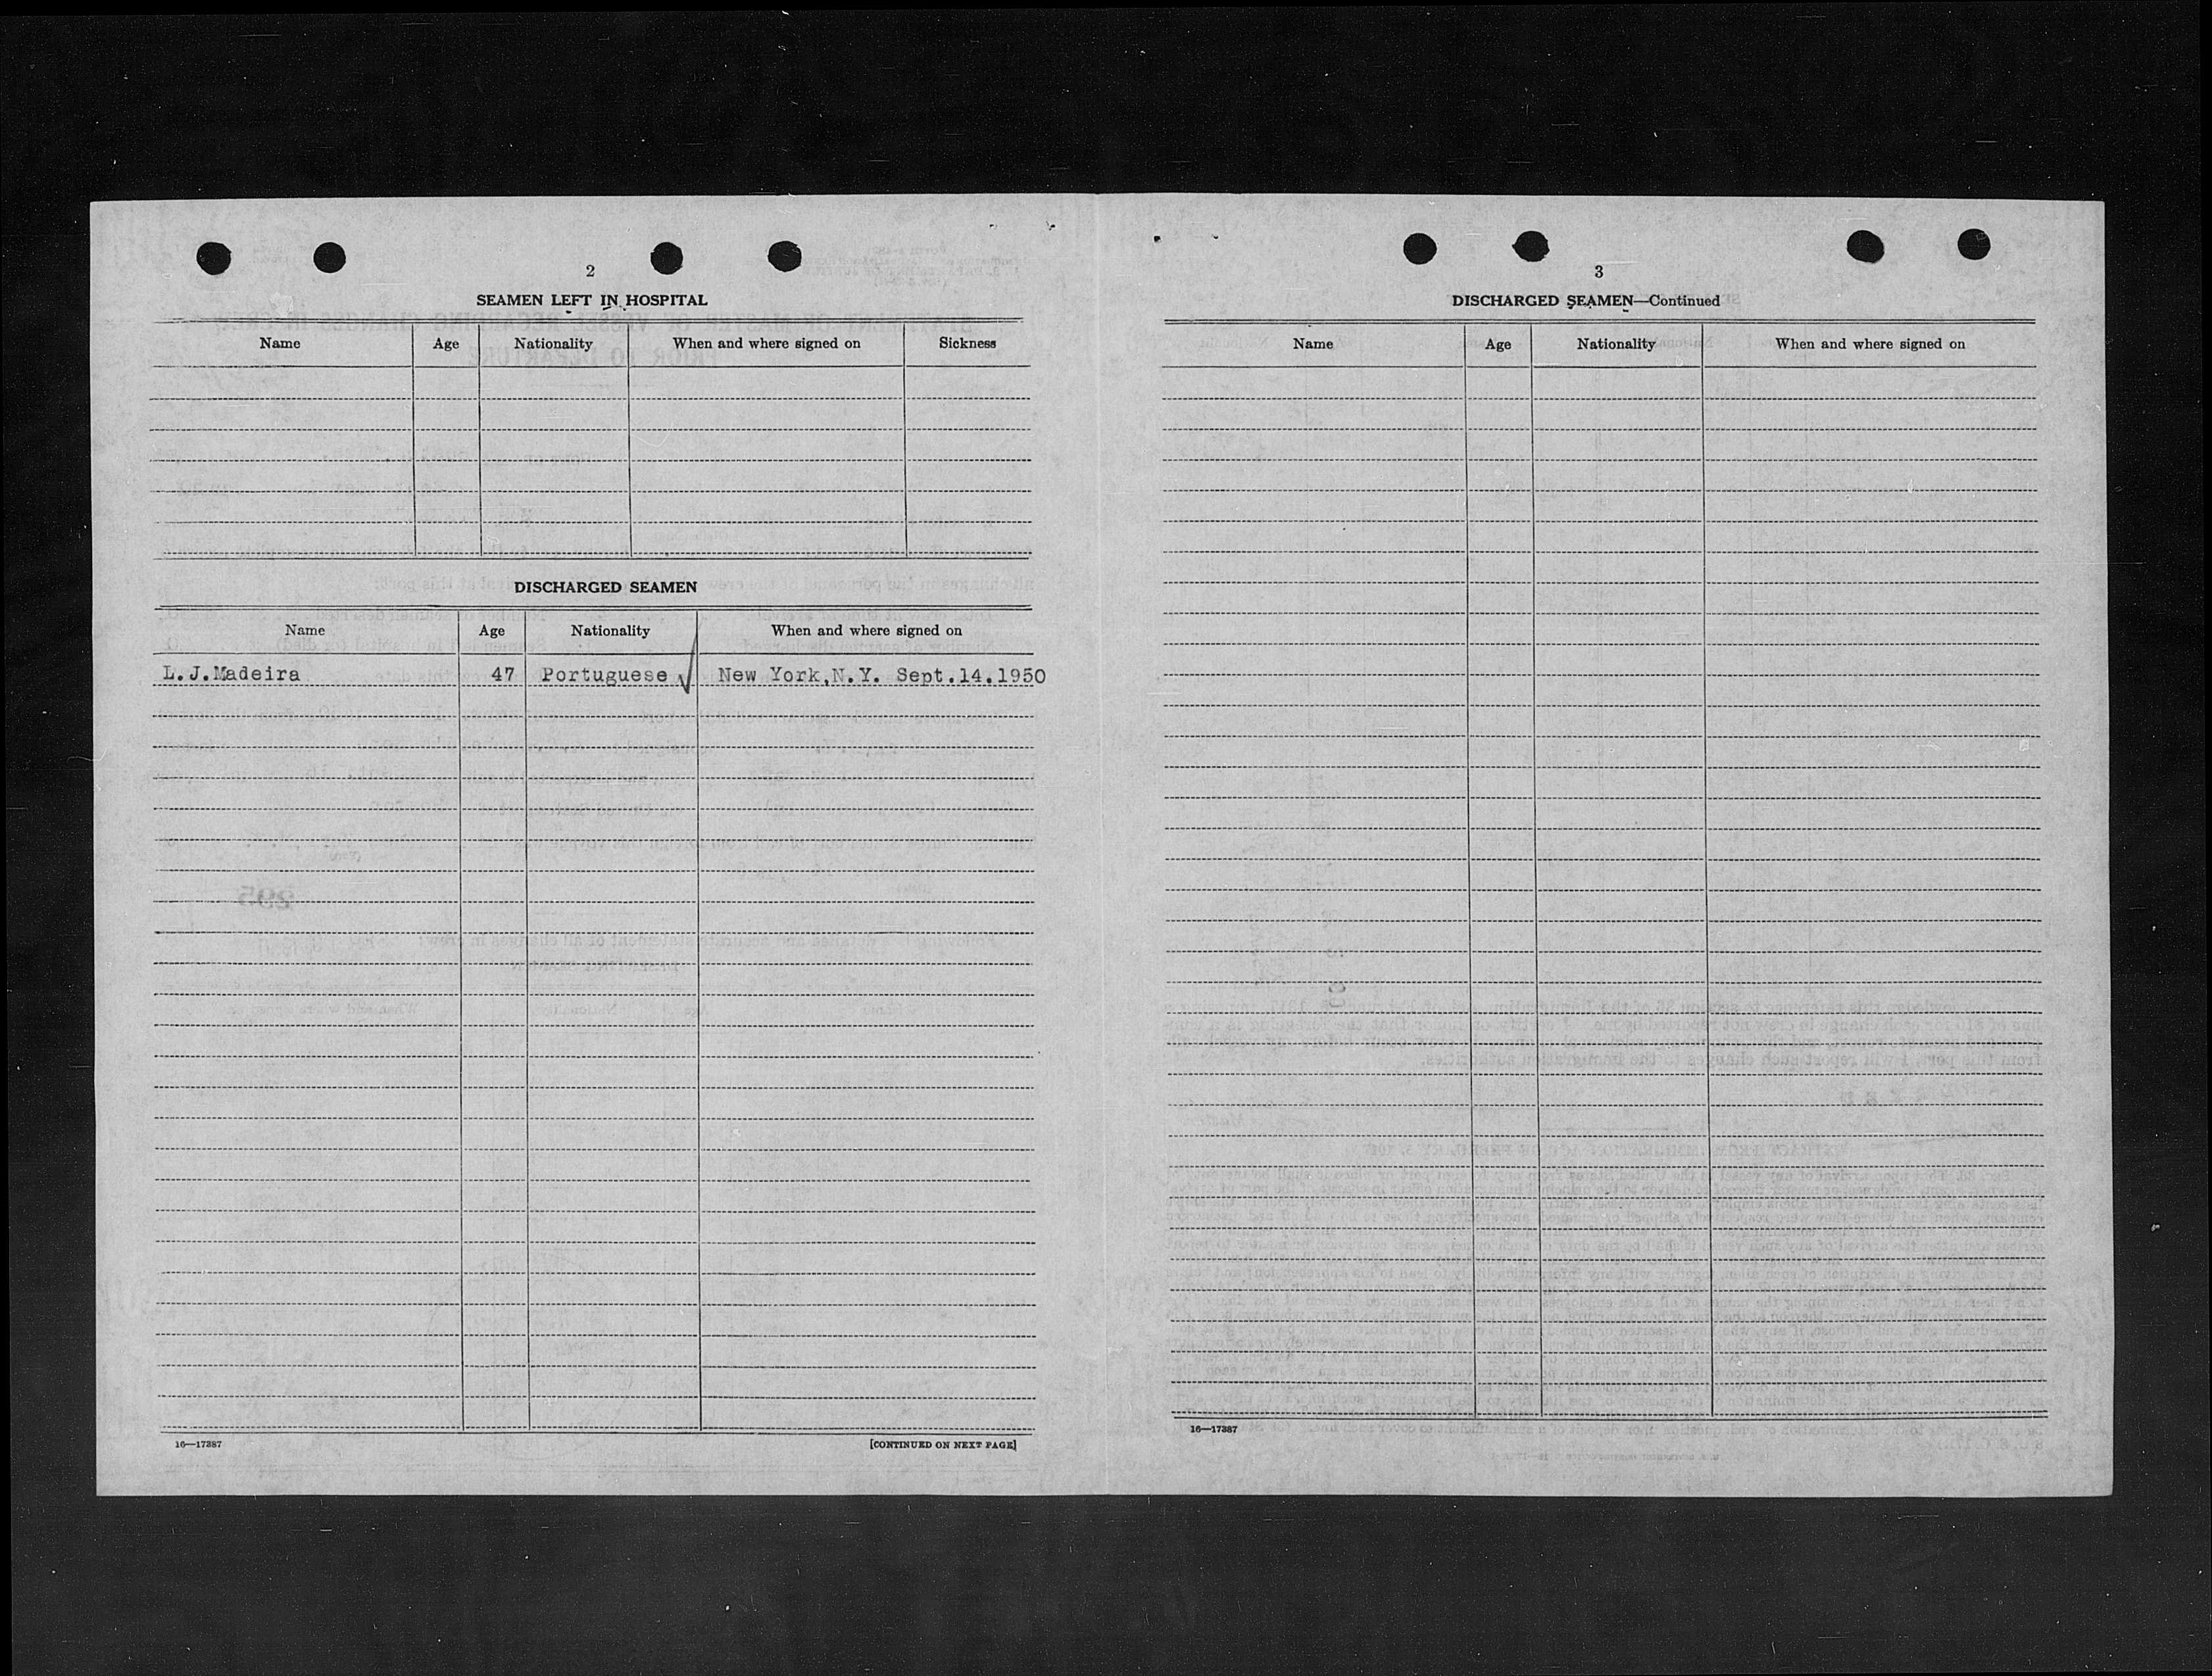 2
SEAMEN LEFT IN HOSPITAL
Name Age Nationality When and where signed on Sickness
DISCHARGED SEAMEN
Name Age Nationality When and where signed on
L.J.Madeira 47 Portuguese ✓ New York,N.Y. Sept.14.1950
16—17387 [CONTINUED ON NEXT PAGE]
3
DISCHARGED SEAMEN—Continued
Name Age Nationality When and where signed on
16—17387